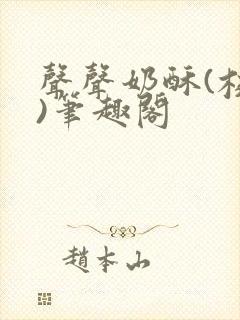 聲聲奶酥(校
)筆趣閣
趙本山